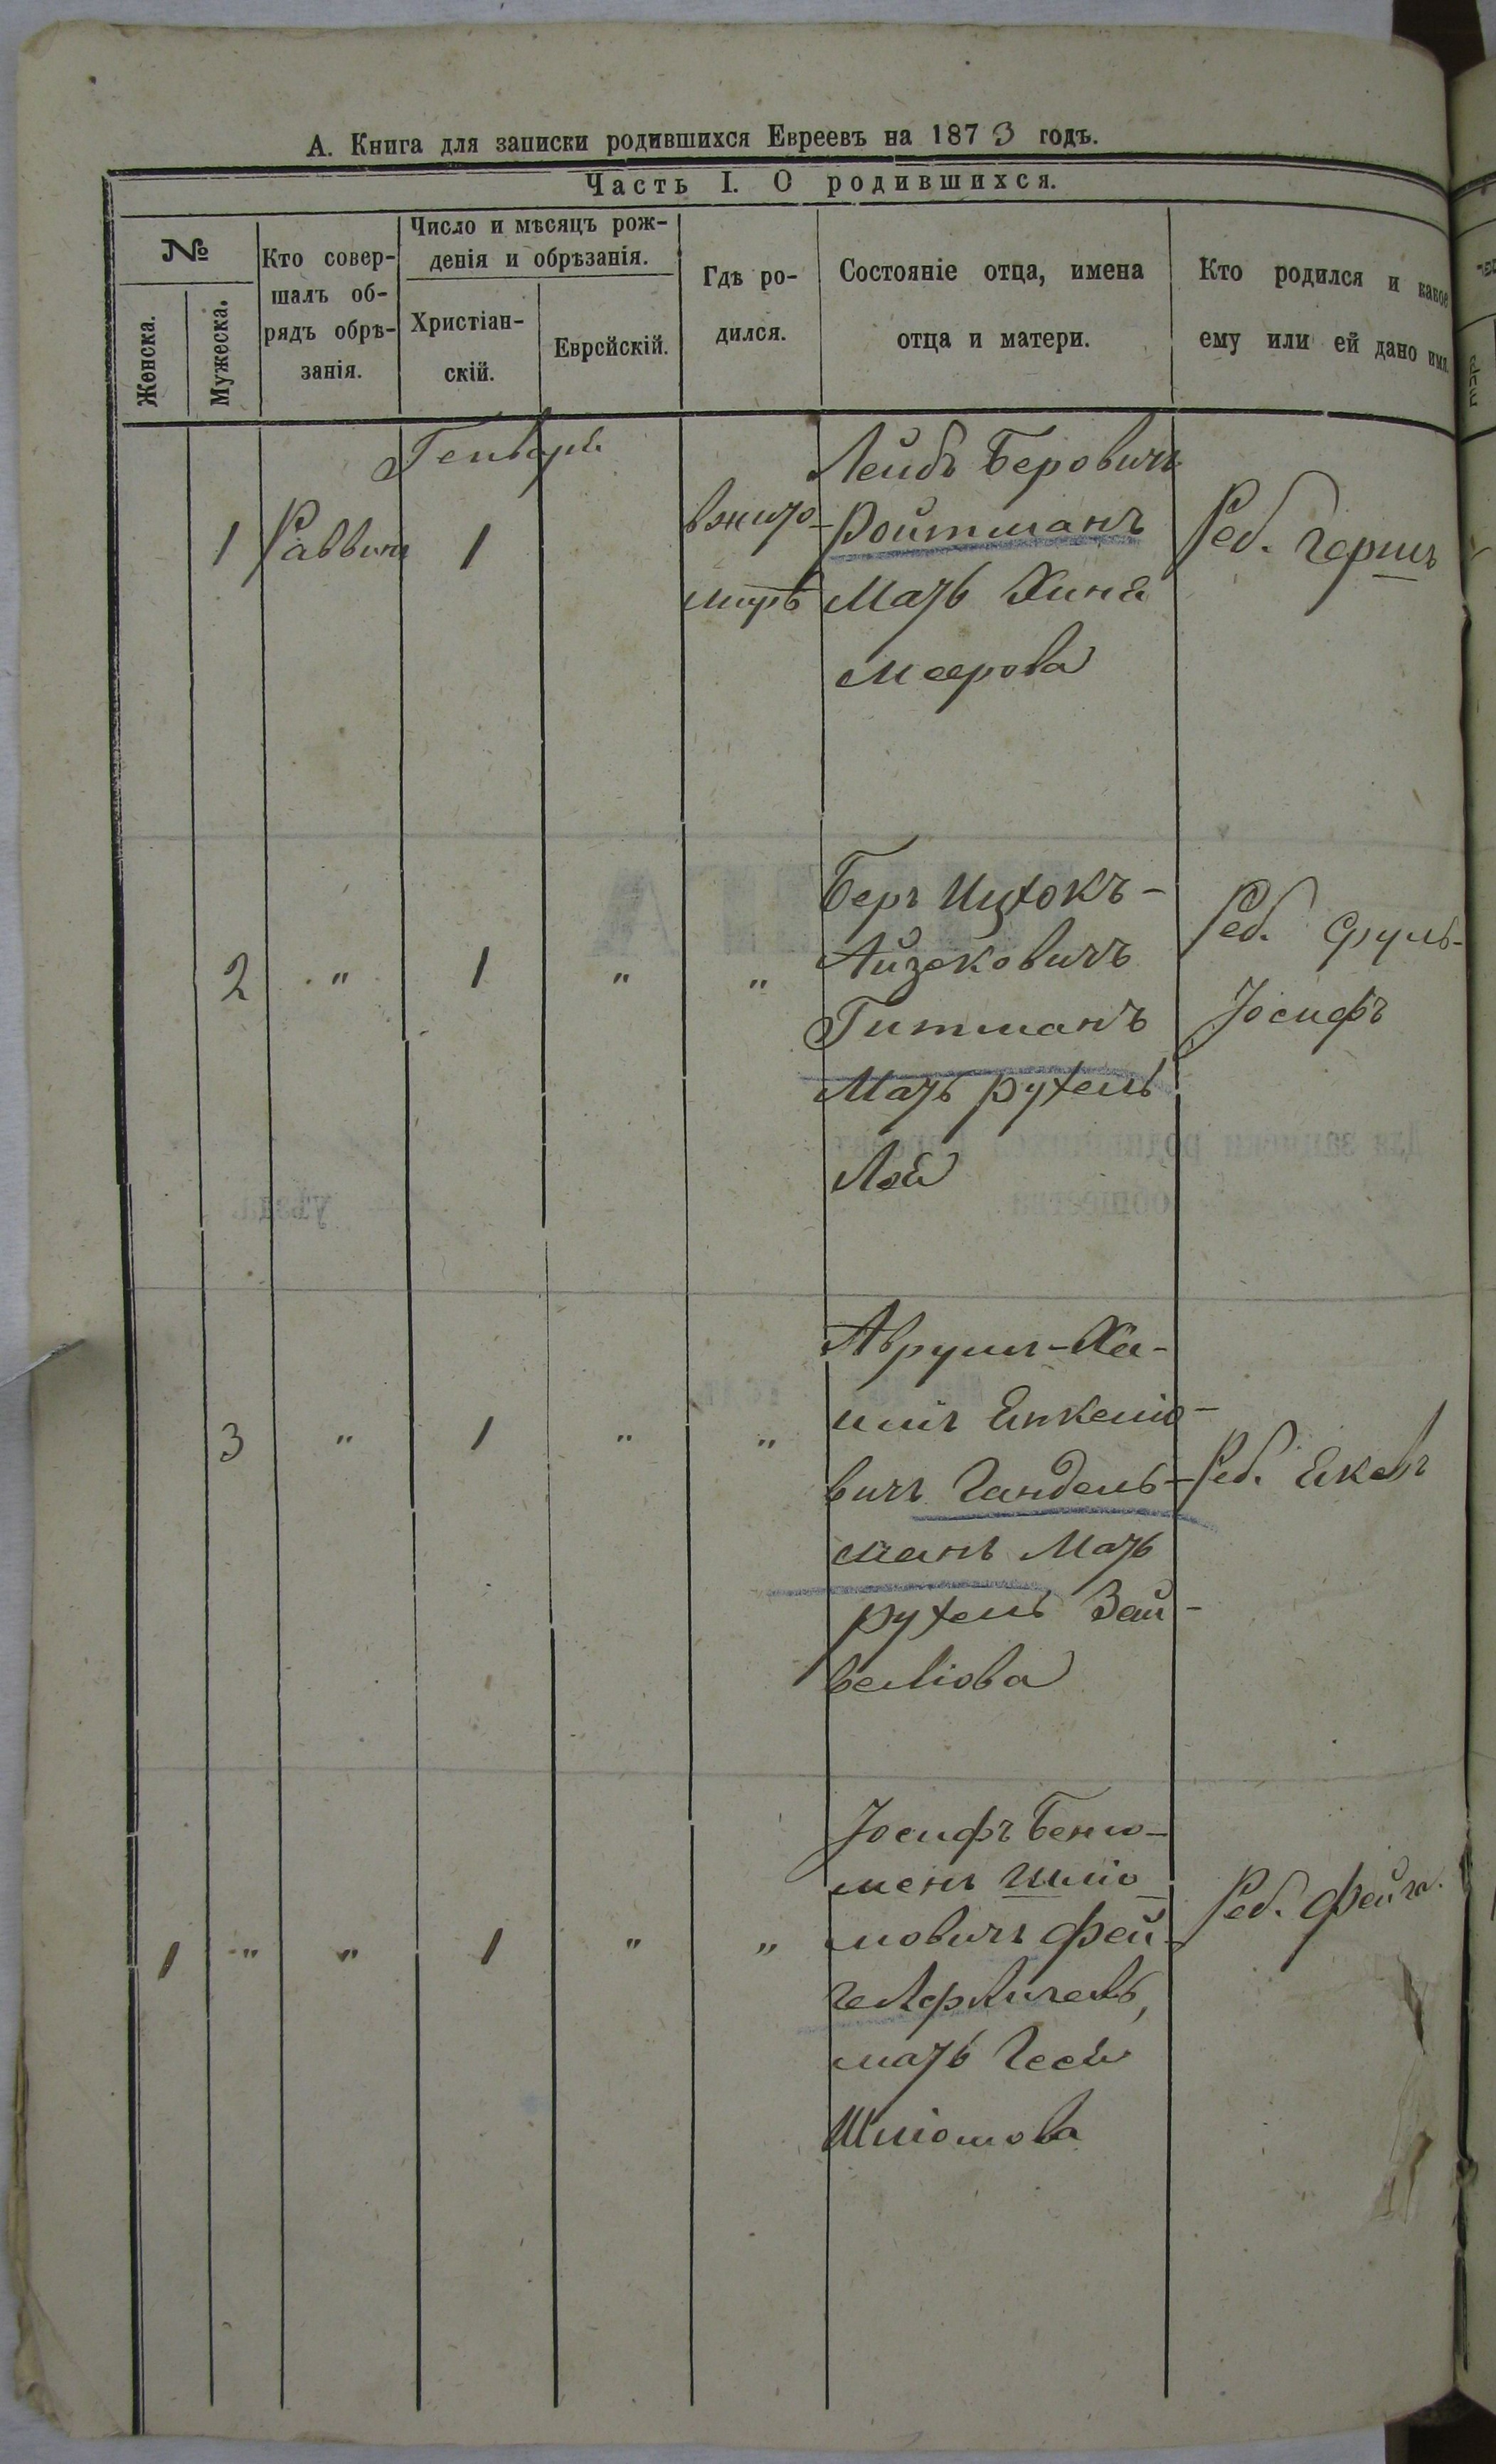 А. Книга для записки родившихся Евреевъ на 1873 годъ.
Часть I. О родившихся.
№
Женска.
Мужеска.
Кто совер-
шалъ об-
рядъ обрѣ-
занія.
Число и мѣсяцъ рож-
денія и обрѣзанія.
Христіан-
скій.
Еврейскій.
Гдѣ ро-
дился.
Состояніе отца, имена
отца и матери.
Кто родился и какое
ему или ей дано имя.
Генваря
1
Раввинъ
1
вжито-
мирѣ
Лейбъ Беровичъ
Ройтманъ
Мать Хиня
Меерова
Реб. Гершъ
2
"
1
"
"
Беръ Ицхокъ-
Айзековичъ
Гитманъ
Мать Рухель
Лея
Реб. Сруль-
Іосифъ
3
"
1
"
"
Аврумъ-Ха-
имъ
вичъ Гандель-
манъ Мать
Рухель Зей-
веліова
Реб. Екевъ
1
"
"
1
"
"
Іосифъ Беню-
менъ Шлio-
мовичъ Фей-
мать
Шліомова
Реб. Фейга.